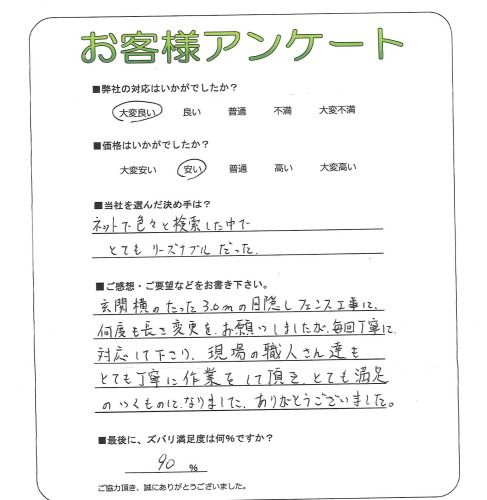 お客様アンケート
■弊社の対応はいかがでしたか？
大変良い 良い 普通 不満 大変不満
■価格はいかがでしたか？
大変安い 安い 普通 高い 大変高い
■当社を選んだ決め手は？
ネットで色々と検索した中で
とてもリーズナブルだった。
■ご感想・ご要望などをお書き下さい。
玄関横のたった3.0mの目隠しフェンス工事に、
何度も長さ変更をお願いしましたが、毎回丁寧に
対応して下さり、現場の職人さん達も
とても丁寧に作業をして頂き、とても満足
のいくものになりました。ありがとうございました。
■最後に、ズバリ満足度は何％ですか？
90 ％
ご協力頂き、誠にありがとうございました。